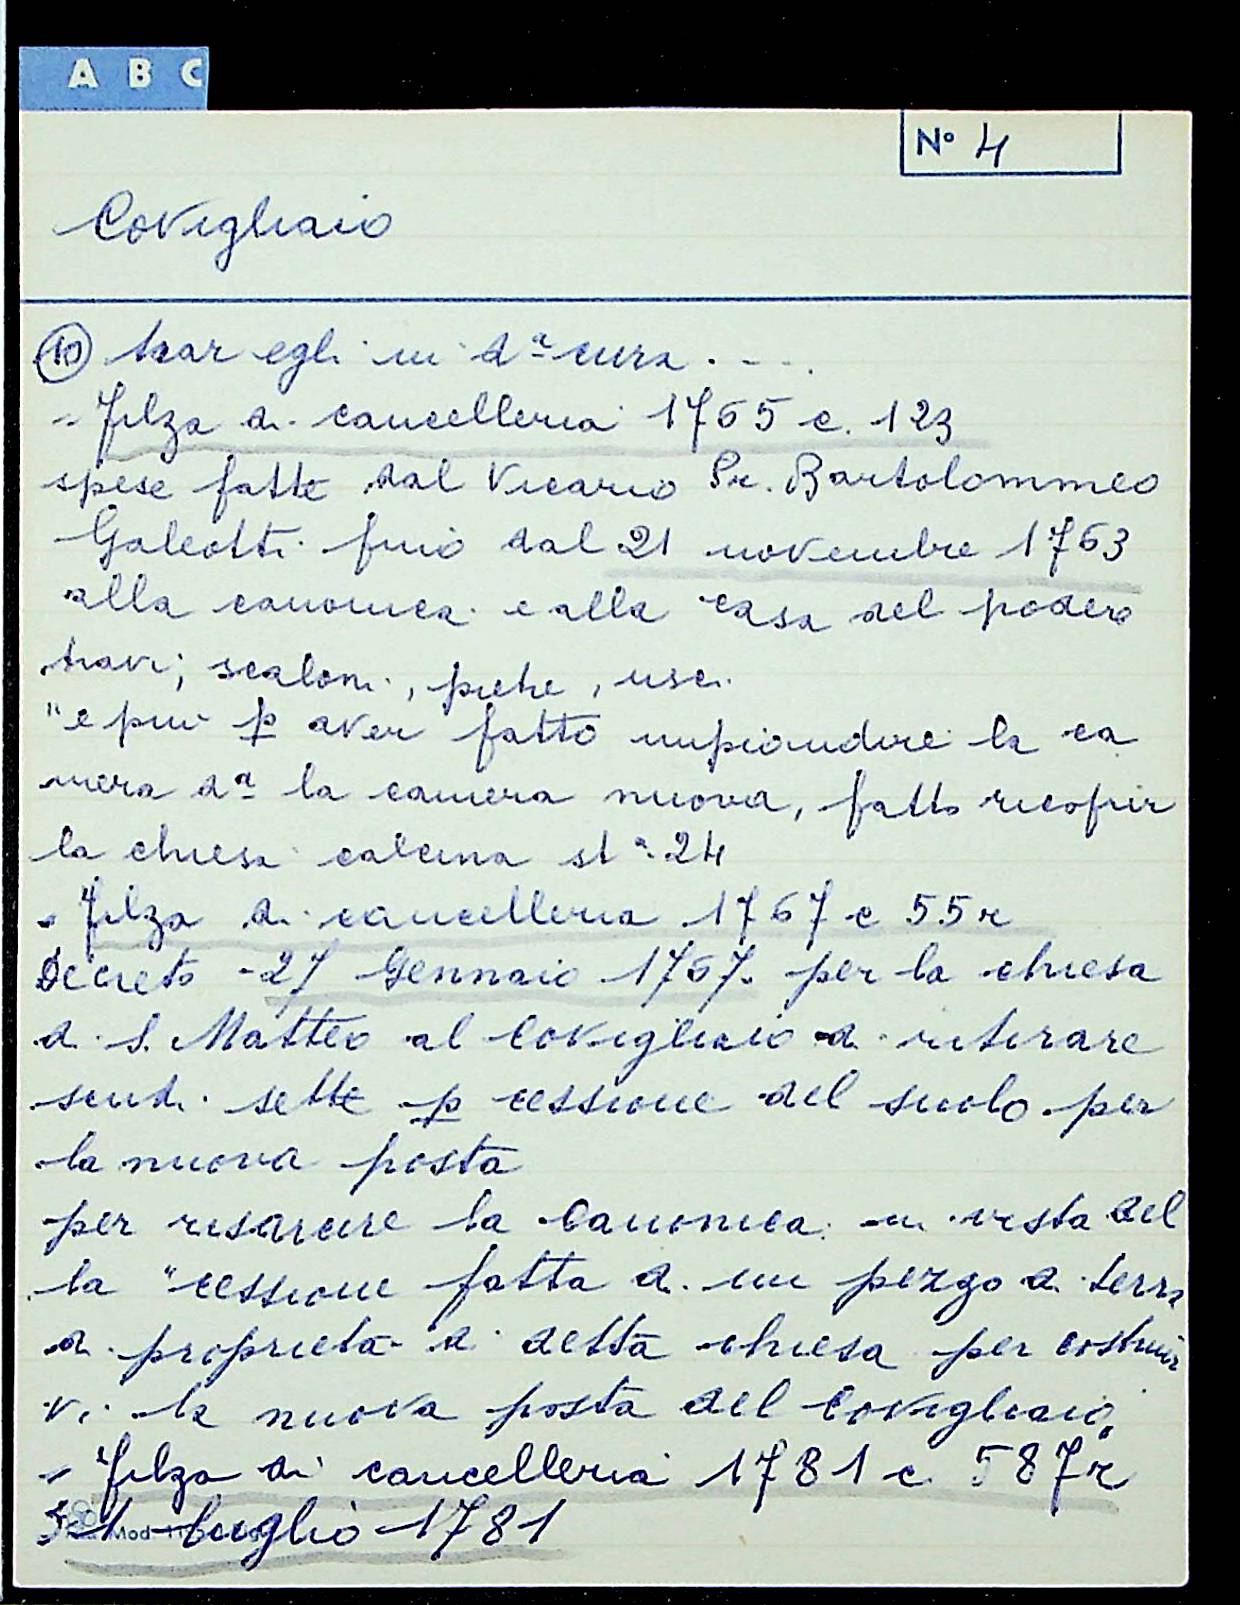 A B C
N° 4
Covigliaio
⑩ star egli in d.ª cura . - - .
- Filza di cancelleria 1765 c. 123
spese fatte dal Vicario Pr. Bartolommeo
Galeotti fino dal 21 novembre 1763
alla canonica e alla casa del podere
travi, scaloni, pietre, usci
"e più p aver fatto impiandire la ca
mera d.ª la camera nuova, fatto ricoprir
la chiesa calcina st.ª 24
- Filza di cancelleria 1767 c 55r
Decreto - 27 Gennaio 1767. per la chiesa
di S. Matteo al Covigliaio di ritirare
scudi sette p cessione del suolo per
la nuova posta
per risarcire la Canonica in vista del
la "cessione fatta di un pezzo di terra
di proprietà di detta chiesa per costruir
vi la nuova posta del Covigliaio"
- Filza di cancelleria 1781 c. 587r
luglio 1781